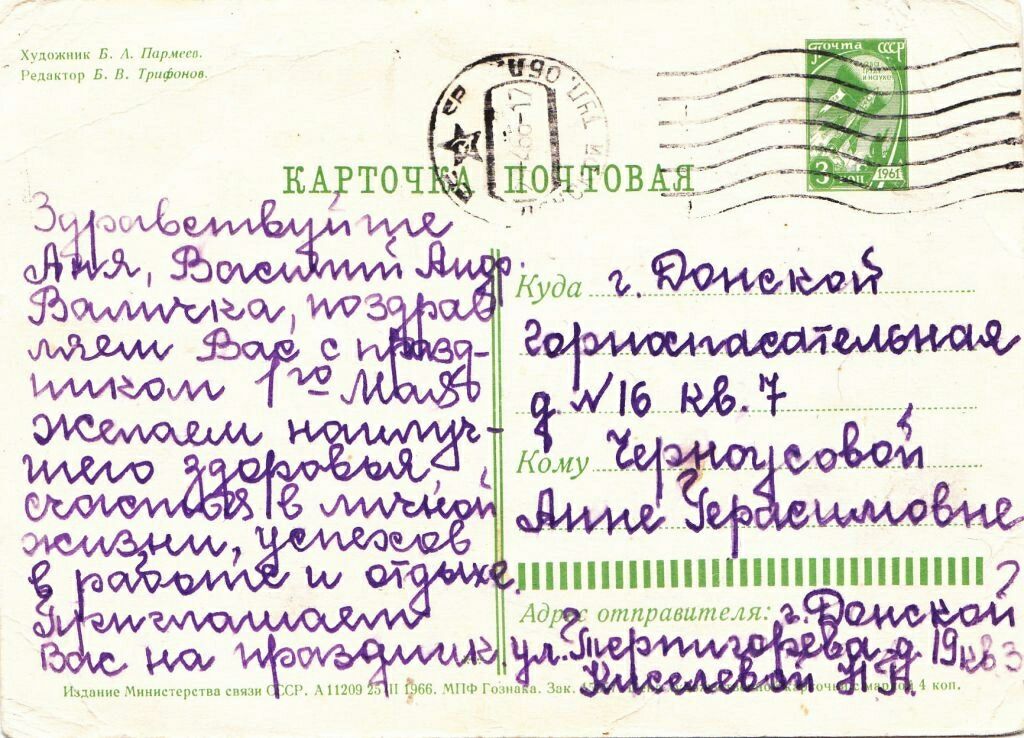 Художник Б. А. Пармеев.
Редактор Б. В. Трифонов.
почта СССР
3 коп. 1961
КАРТОЧКА ПОЧТОВАЯ
Здравствуйте
Аня, Василий Андр.
Валичка, поздрав
ляем Вас с празд-
ником 1го Мая
Желаем наилуч-
шего здоровья,
счастья в личной
жизни, успехов
в работе и отдыхе.
Приглашаем
Вас на праздник
Куда г. Донской
Горноспасательная
д. №16 кв. 7
Кому Черноусовой
Анне Герасимовне
Адрес отправителя: г. Донской
ул. Терпигорева д. 19 кв 3
Киселевой Н.А.
Издание Министерства связи СССР. А 11209 25/II 1966. МПФ Гознака. Зак. карточки с маркой 4 коп.